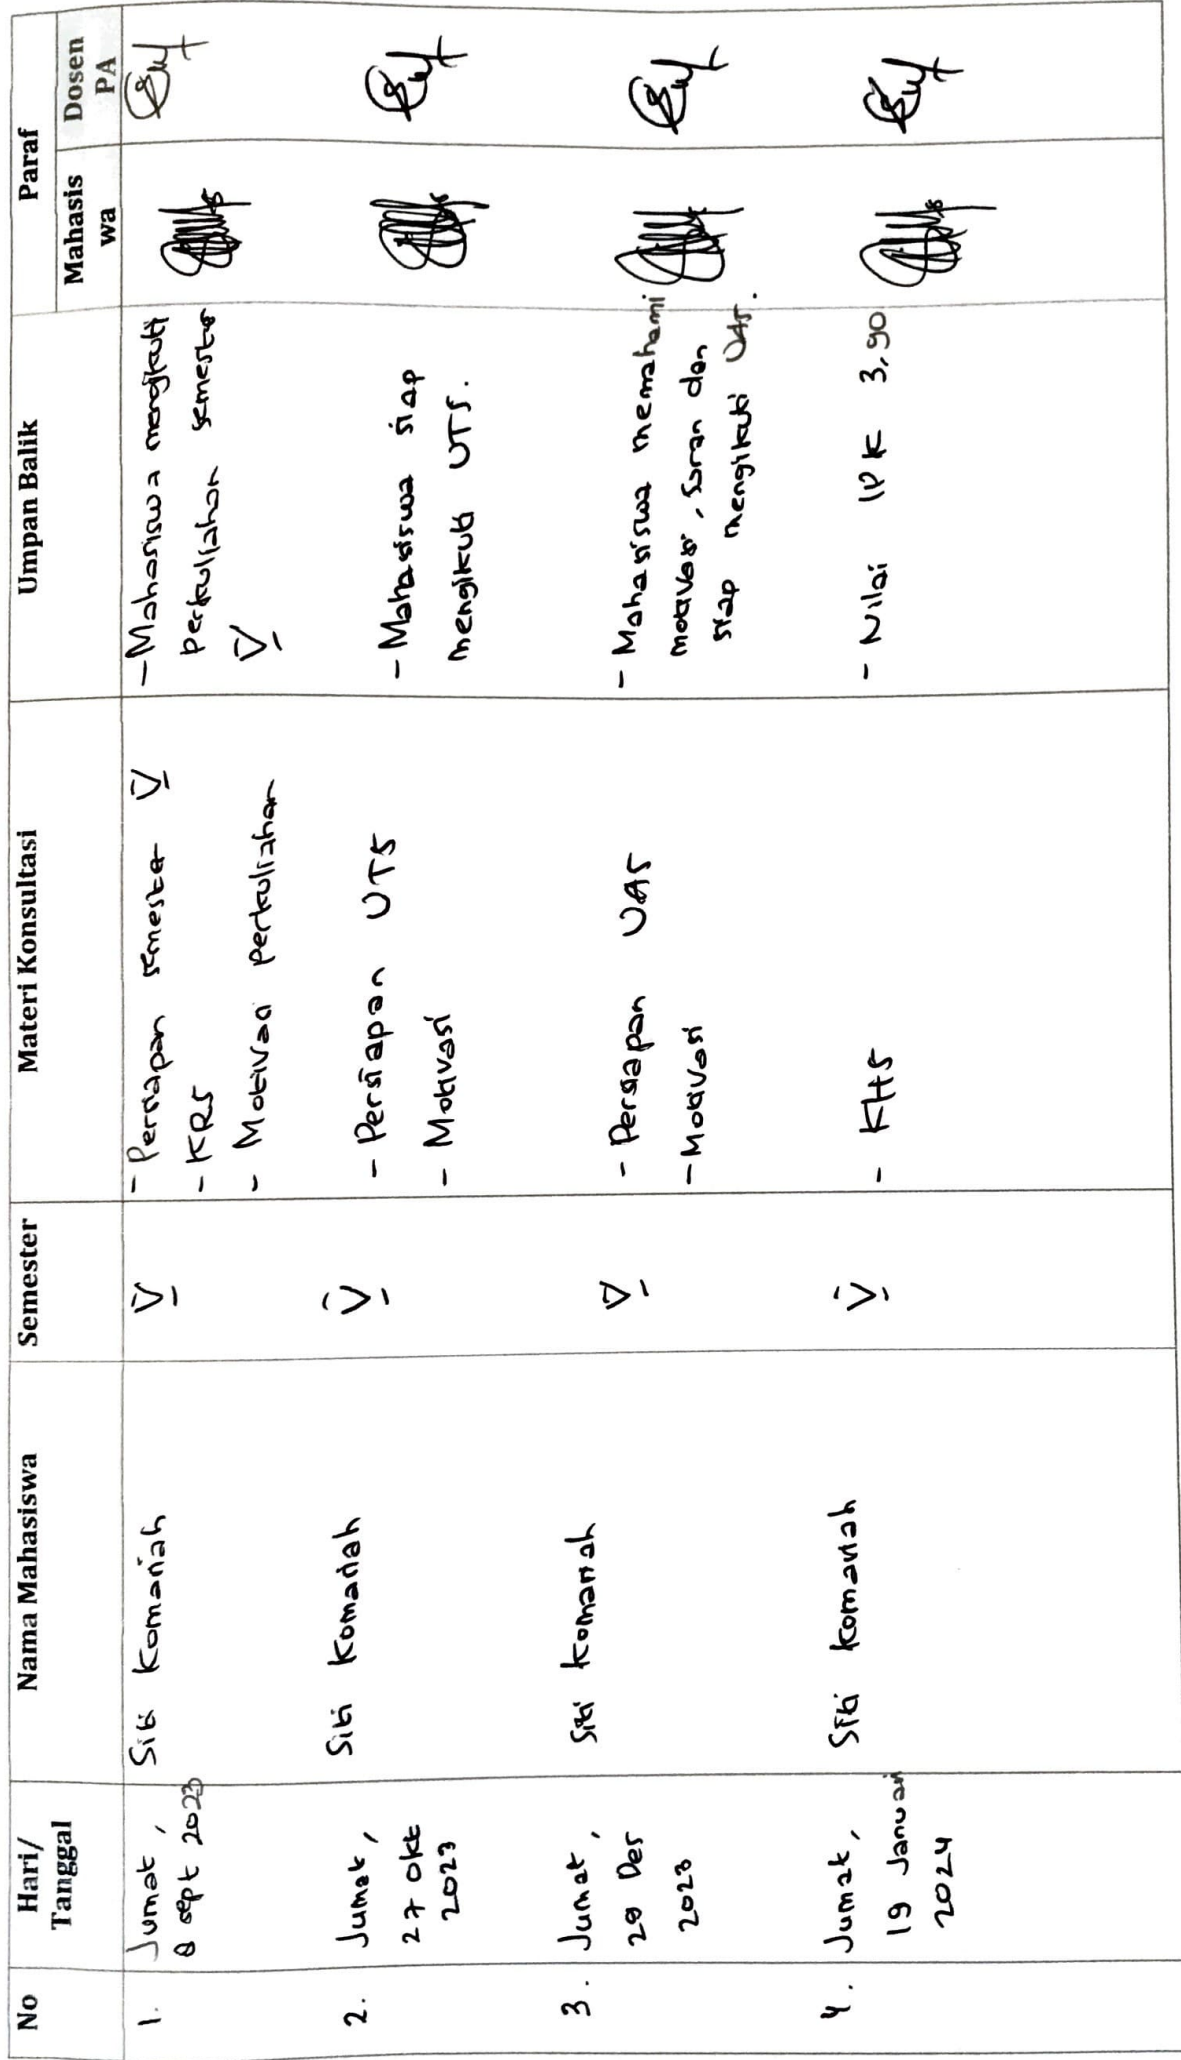 No
Hari/
Tanggal
Nama Mahasiswa
Semester
Materi Konsultasi
Umpan Balik
Paraf
Mahasis
wa
Dosen
PA
1.
Jumat,
8 sept 2023
Siti Komariah
V
- Persiapan semester V
- KRS
- Motivasi perkuliahan
- Mahasiswa mengikuti
perkuliahan semester
V
2.
Jumat,
27 Okt
2023
Siti Komariah
V
- Persiapan UTS
- Motivasi
- Mahasiswa siap
mengikuti UTS.
3.
Jumat,
29 Des
2023
Siti Komariah
V
- Persiapan UAS
- Motivasi
- Mahasiswa memahami
motivasi, saran dan
siap mengikuti UAS.
4.
Jumat,
19 Januari
2024
Siti Komariah
V
- KHS
- Nilai IPK 3,90